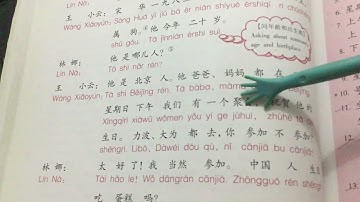 王 小云：宋 华 一九八
Wáng Xiǎoyún: Sòng Huá yī jiǔ bā èr nián shíyuè èrshíqī
属 狗，他 今年 二十 岁。
shǔ gǒu. Tā jīnnián èrshí suì
问年龄和出生地
Asking about someone's
age and birthplace
林 娜：他是 哪儿人？
Lín Nà: Tā shì nǎr rén?
王 小云：他是 北京 人。他爸爸、妈妈 都 在
Wáng Xiǎoyún: Tā shì Běijīng rén. Tā bàba, māma
星期日 下午 我们 有 一个 聚 祝贺 他的
Xīngqīrì xiàwǔ wǒmen yǒu yí ge jùhuì, zhùhè tā
生日。力波、大为 都 去，你 参加 不 参加
shēngrì. Lìbō, Dàwéi dōu qù, nǐ cānjiā bu cānjiā
林 娜：太 好了！我 当然 参加。中国 人 生日
Lín Nà: Tài hǎo le! Wǒ dāngrán cānjiā. Zhōngguó rén shēng
吃 蛋糕 吗？